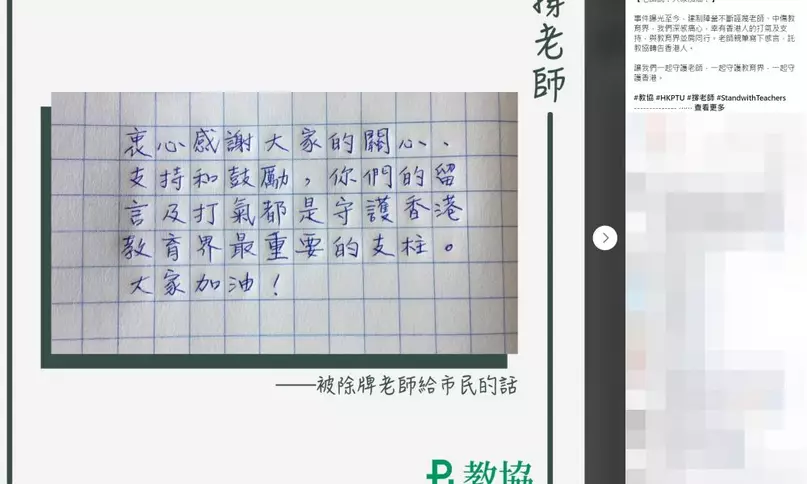 撐老師
衷心感謝大家的關心、
支持和鼓勵，你們的留
言及打氣都是守護香港
教育界最重要的支柱。
大家加油！
——被除牌老師給市民的話
教協
事件曝光至今，建制陣營不斷詆譭老師、中傷教
育界，我們深感痛心，幸有香港人的打氣及支
持，與教育界並肩同行。老師親筆寫下感言，託
教協轉告香港人。
讓我們一起守護老師，一起守護教育界，一起守
護香港。
#教協 #HKPTU #撐老師 #StandwithTeachers
---------------- ...... 查看更多